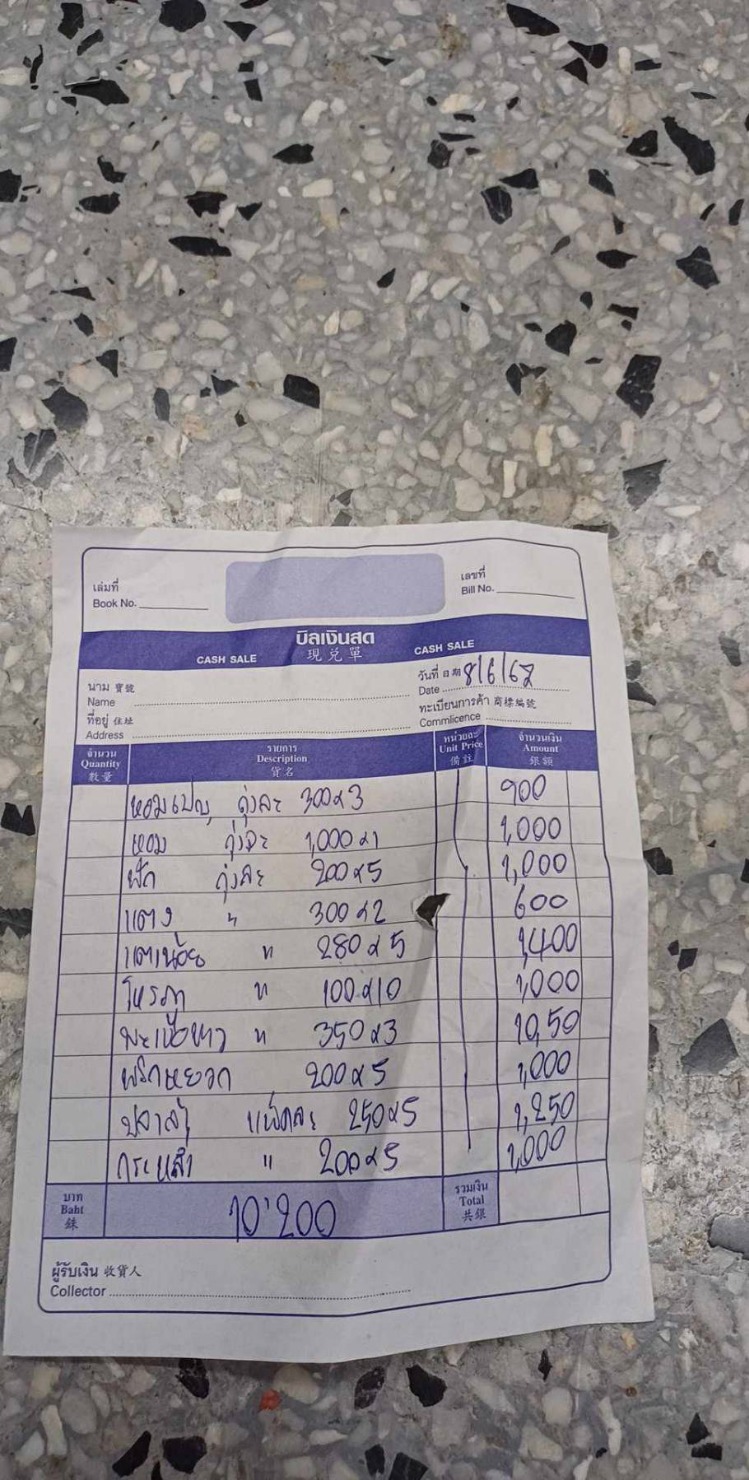 เล่มที่
Book No.
เลขที่
Bill No.
บิลเงินสด
CASH SALE 現兌單 CASH SALE
วันที่ 日期 8/6/67
Date
นาม 寶號
Name
ทะเบียนการค้า 商標編號
Commlicence
ที่อยู่ 住址
Address
จำนวน รายการ หน่วยละ จำนวนเงิน
Quantity Description Unit Price Amount
數量 貨名 備註 銀額
หอมเปญ ถุงละ 300x3 900
หอม ถุงละ 1,000x1 1,000
ฟัก ถุงละ 200x5 1,000
แตง " 300x2 600
แตงน้อย " 280x5 1,400
โหรภา " 100x10 1,000
มะเขือขาว " 350x3 10,50
พริกหยวก 200x5 1,000
ปลาส้ม แพ็คละ 250x5 1,250
กระหล่ำ " 200x5 1,000
บาท รวมเงิน
Baht 10'200 Total
銖 共銀
ผู้รับเงิน 收貨人
Collector